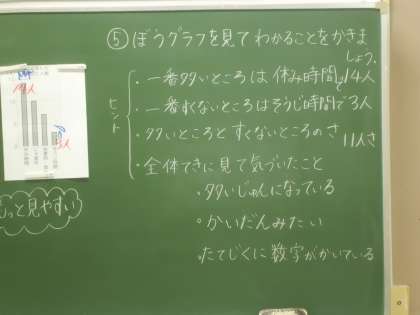 ⑤ぼうグラフを見てわかることをかきま
しょう。
ヒント
・一番多いところは休み時間で14人
・一番すくないところはそうじ時間で3人
・多いところとすくないところのさ 11人さ
・全体てきに見て気づいたこと
・多いじゅんになっている
・かいだんみたい
・たてじくに数字がかいている
っと見やすい
14人
3人